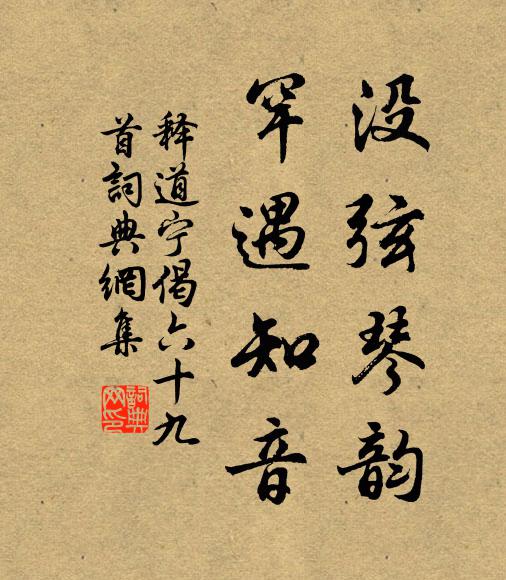 没弦琴韵
罕遇知音
释道宁偈六十九
首詞典網集
詞典
网印